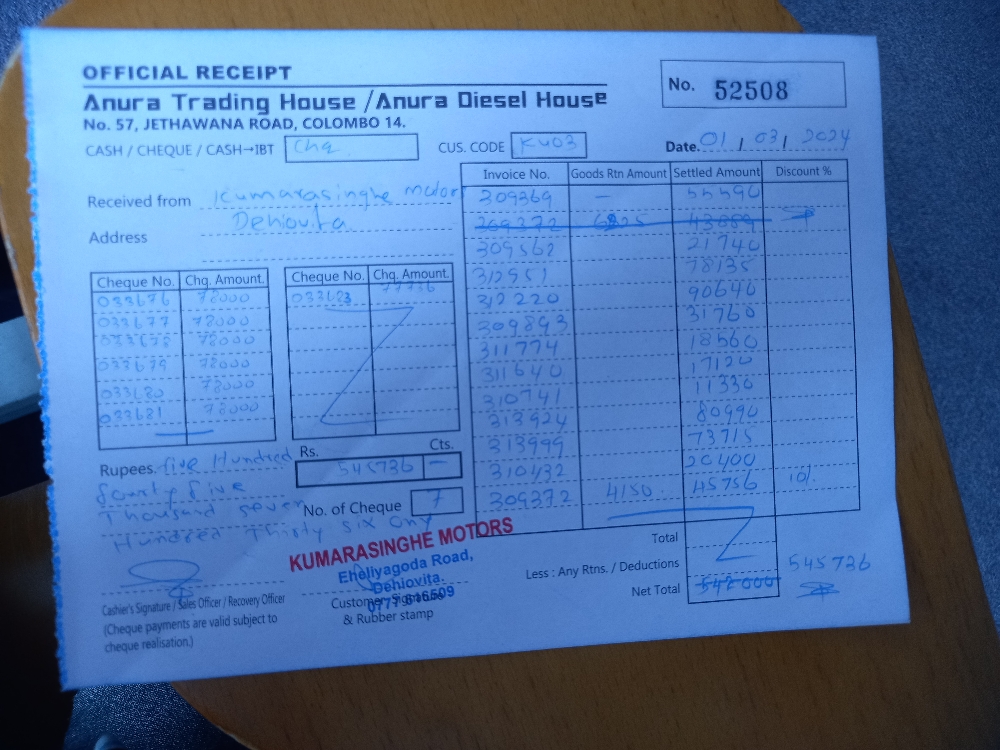 OFFICIAL RECEIPT
No. 52508
Anura Trading House / Anura Diesel House
No. 57, JETHAWANA ROAD, COLOMBO 14.
CASH / CHEQUE / CASH→IBT Chq
CUS. CODE KU03
Date. 01 / 03 / 2024
Received from Kumarasinghe motors
Address Dehiovita
Cheque No. Chq. Amount.
033676 78000
033677 78000
033678 78000
033679 78000
033680 78000
033681 78000
Cheque No. Chq. Amount.
033683 77736
Invoice No. Goods Rtn Amount Settled Amount Discount %
309369 — 55590
269372 6825 43089
309562 21740
312951 78135
312220 90640
309893 31760
311774 18560
311640 17120
310741 11330
313924 80990
313999 73715
310432 20400
309372 4150 45756 10%
Rupees. five Hundred
fourty five
Thousand seven
Hundred Thirty six only
Rs. Cts.
545736 —
No. of Cheque 7
Total
Less : Any Rtns. / Deductions
Net Total 542000
545736
KUMARASINGHE MOTORS
Eheliyagoda Road,
Dehiovita.
Cashier's Signature / Sales Officer / Recovery Officer
(Cheque payments are valid subject to
cheque realisation.)
Customer
& Rubber stamp